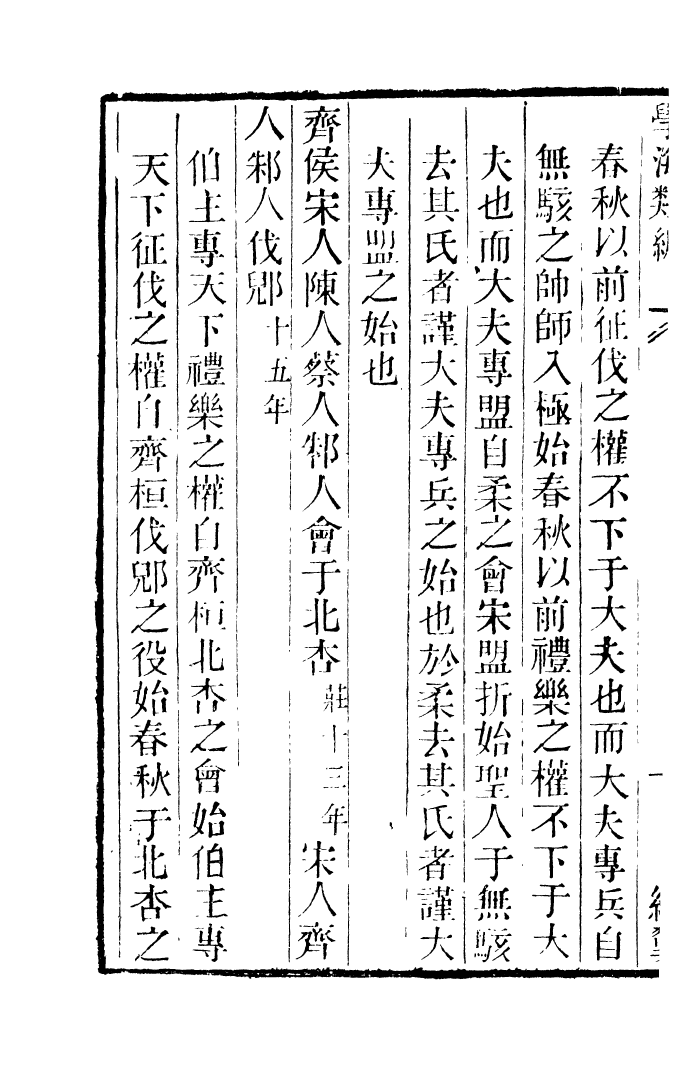 學海類編
春秋以前征伐之權不下于大夫也而大夫專兵自
無駭之帥師入極始春秋以前禮樂之權不下于大
夫也而大夫專盟自柔之會宋盟折始聖人于無駭
去其氏者謹大夫專兵之始也於柔去其氏者謹大
夫專盟之始也
齊侯宋人陳人蔡人邾人會于北杏莊十三年宋人齊
人邾人伐郳十五年
伯主專天下禮樂之權自齊桓北杏之會始伯主專
天下征伐之權自齊桓伐郳之役始春秋于北杏之